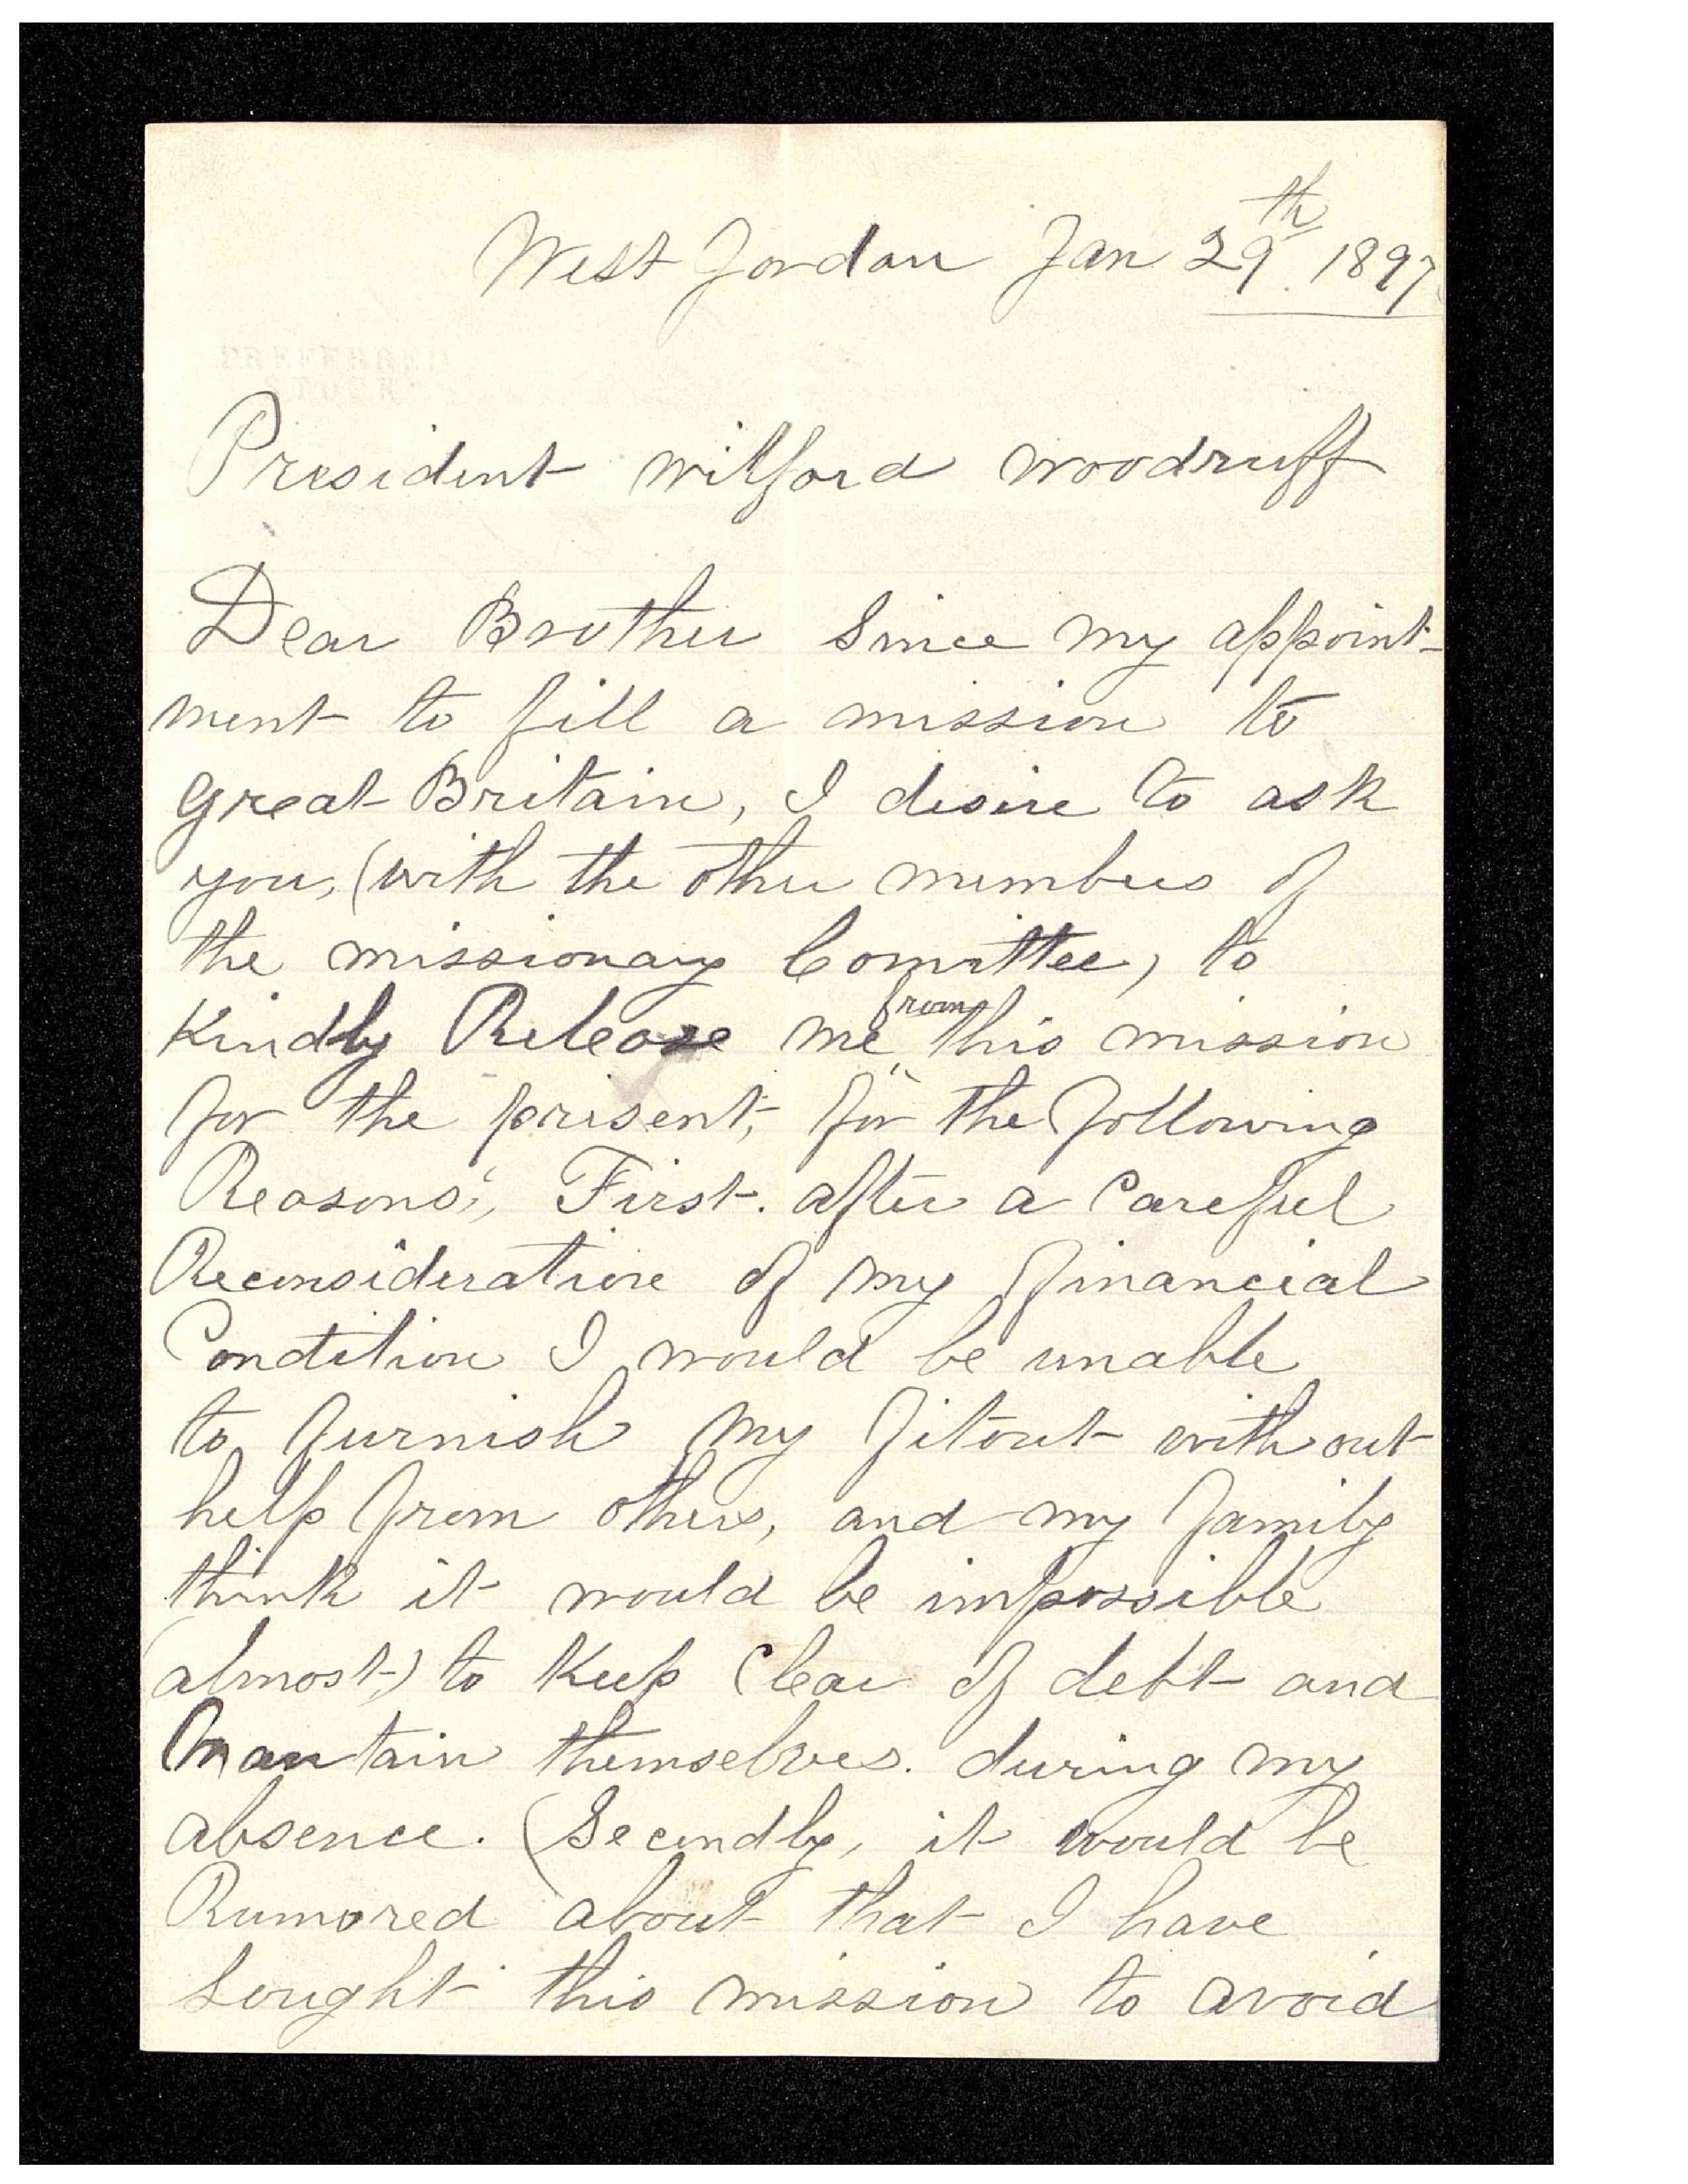 West Jordan Jan 29th. 1897
President wilford woodruff
Dear Brother Since my appoint-
ment to fill a mission to
great Britain, I desire to ask
you, (with the other members of
the missionary Comittee) to
Kindly Release me from this mission
for the present, for the following
Reasons;, First. after a Careful
Reconsideration of my financial
Condition I would be unable
to furnish my fitout without
help from others, and my family
think it would be impossible
(almost) to keep Clear of debt and
Mantain themselves. during my
absence. (Secondly, it would be
Rumored about that I have
Sought this mission to avoid